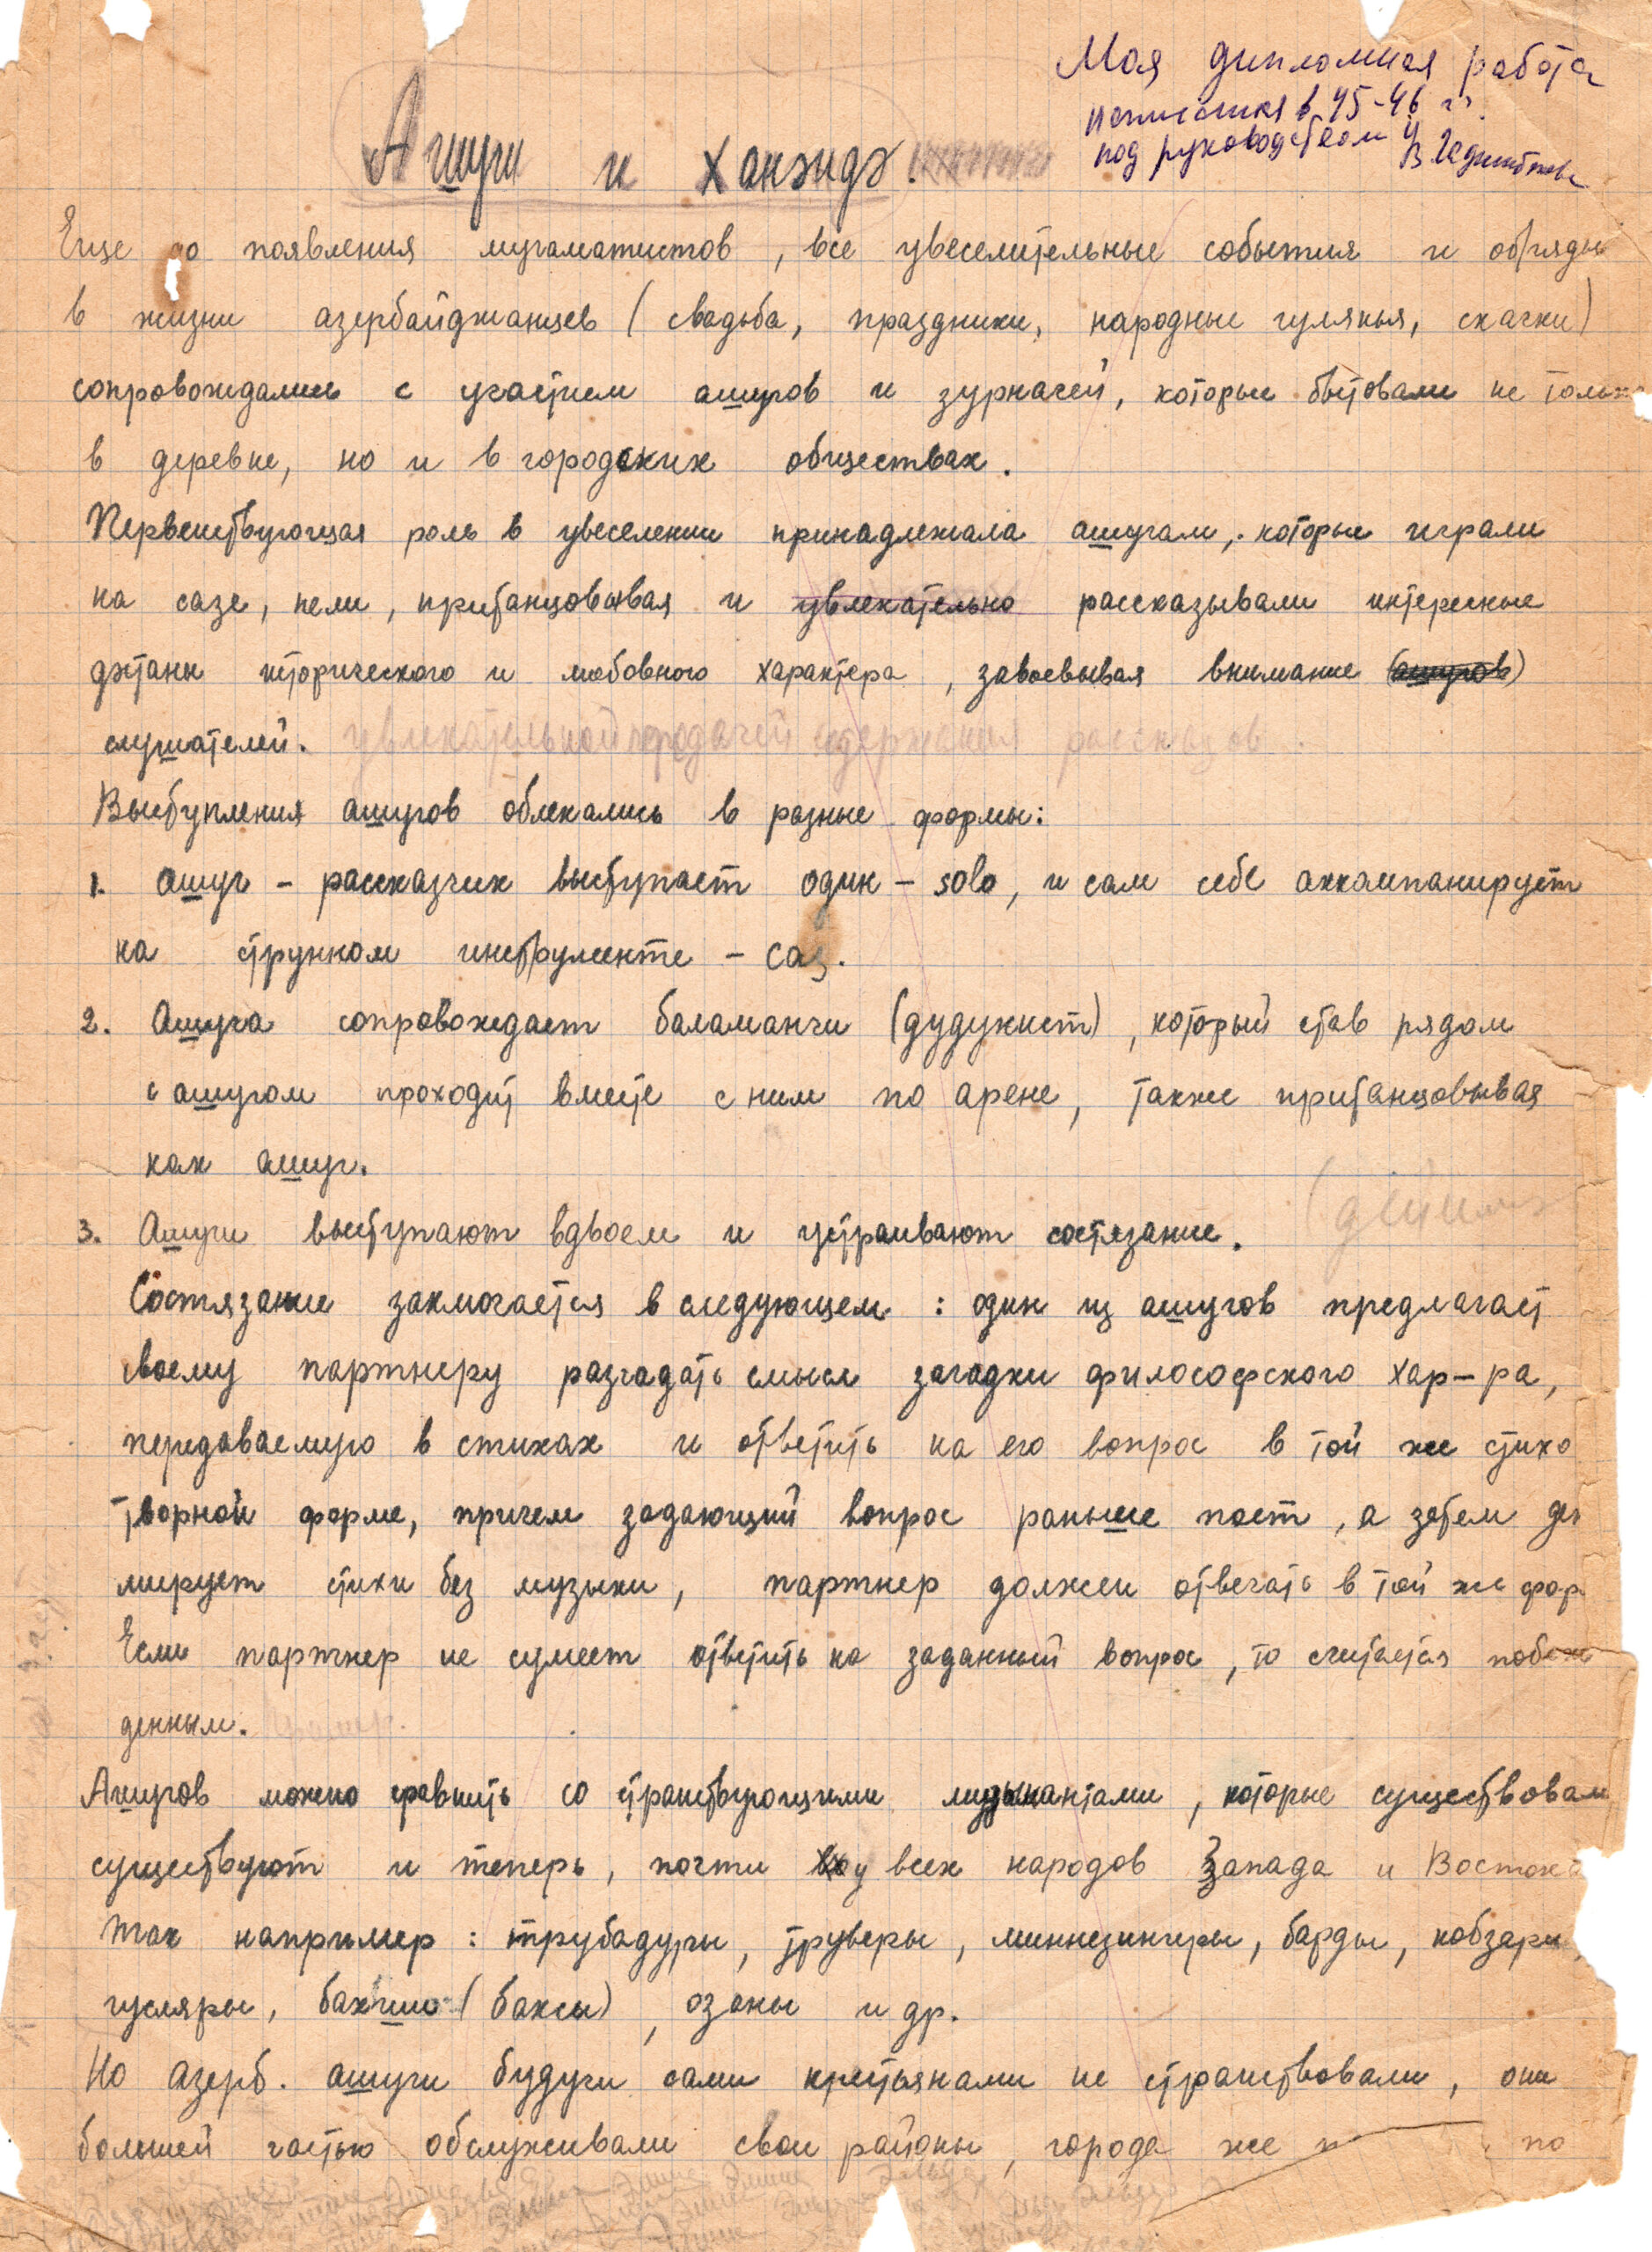 Моя дипломная работа
написанная в 45-46 гг.
под руководством У.
Гаджибекова
Ашуги и Ханэндэ.
Еще до появления мугаматистов, все увеселительные события и обряды
в жизни азербайджанцев (свадьба, праздники, народные гулянья, скачки)
сопровождались с участием ашугов и зурначей, которые бытовали не только
в деревне, но и в городских обществах.
Первенствующая роль в увеселении принадлежала ашугам, которые играли
на сазе, пели, пританцовывая и увлекательно рассказывали интересные
дэстаны исторического и любовного характера, завоевывая внимание (ашугов)
слушателей. увлекательной передачей содержания рассказов.
Выступления ашугов облекались в разные формы:
1. Ашуг - рассказчик выступает один - solo, и сам себе аккомпанирует
на струнном инструменте - саз.
2. Ашуга сопровождает баламанчи (дудукист), который став рядом
с ашугом проходит вместе с ним по арене, также пританцовывая
как ашуг.
3. Ашуги выступают вдвоем и устраивают состязание. (дейишмэ
Состязание заключается в следующем: один из ашугов предлагает
своему партнеру разгадать смысл загадки философского хар-ра,
передаваемую в стихах и ответить на его вопрос в той же стихо
творной форме, причем задающий вопрос раньше поет, а затем дек
мирует стихи без музыки, партнер должен отвечать в той же фор
Если партнер не сумеет ответить на заданный вопрос, то считается побеж
денным. пример.
Ашугов можно сравнить со странствующими музыкантами, которые существовали
существуют и теперь, почти у всех народов Запада и Востока
Так например: трубадуры, труверы, миннезингеры, барды, кобзари,
гусляры, бахши (баксы), озаны и др.
Но азерб. ашуги будучи сами крестьянами не странствовали, они
большей частью обслуживали свои районы, города же по